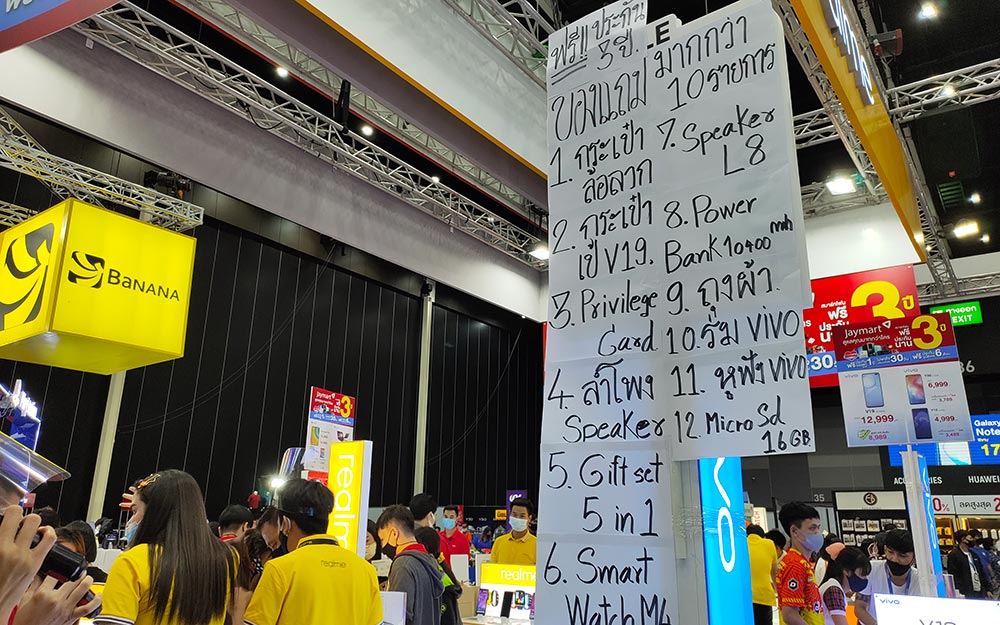 ฟรี!! ประกัน
3 ปี.
ของแถม มากกว่า
10 รายการ
1. กระเป๋า
ล้อลาก
2. กระเป๋า
เป้ V19.
3. Privilege
Card
4. ลำโพง
Speaker
5. Gift set
5 in 1
6. Smart
Watch M4
7. Speaker
L8
8. Power
Bank 10400 mah
9. ถุงผ้า.
10. ร่ม vivo
11. หูฟัง vivo
12. Micro Sd
16 GB.
BaNANA
Jaymart
3 ปี
realme
realme
realme
vivo
ฟรี
3 ปี
30
Jaymart
3 ปี
30 วัน
vivo
V19
12,999
8,989
6,999
3,789
4,999
3,489
ทางออก
EXIT
Galaxy
Note
17
HUAWEI
35
vivo